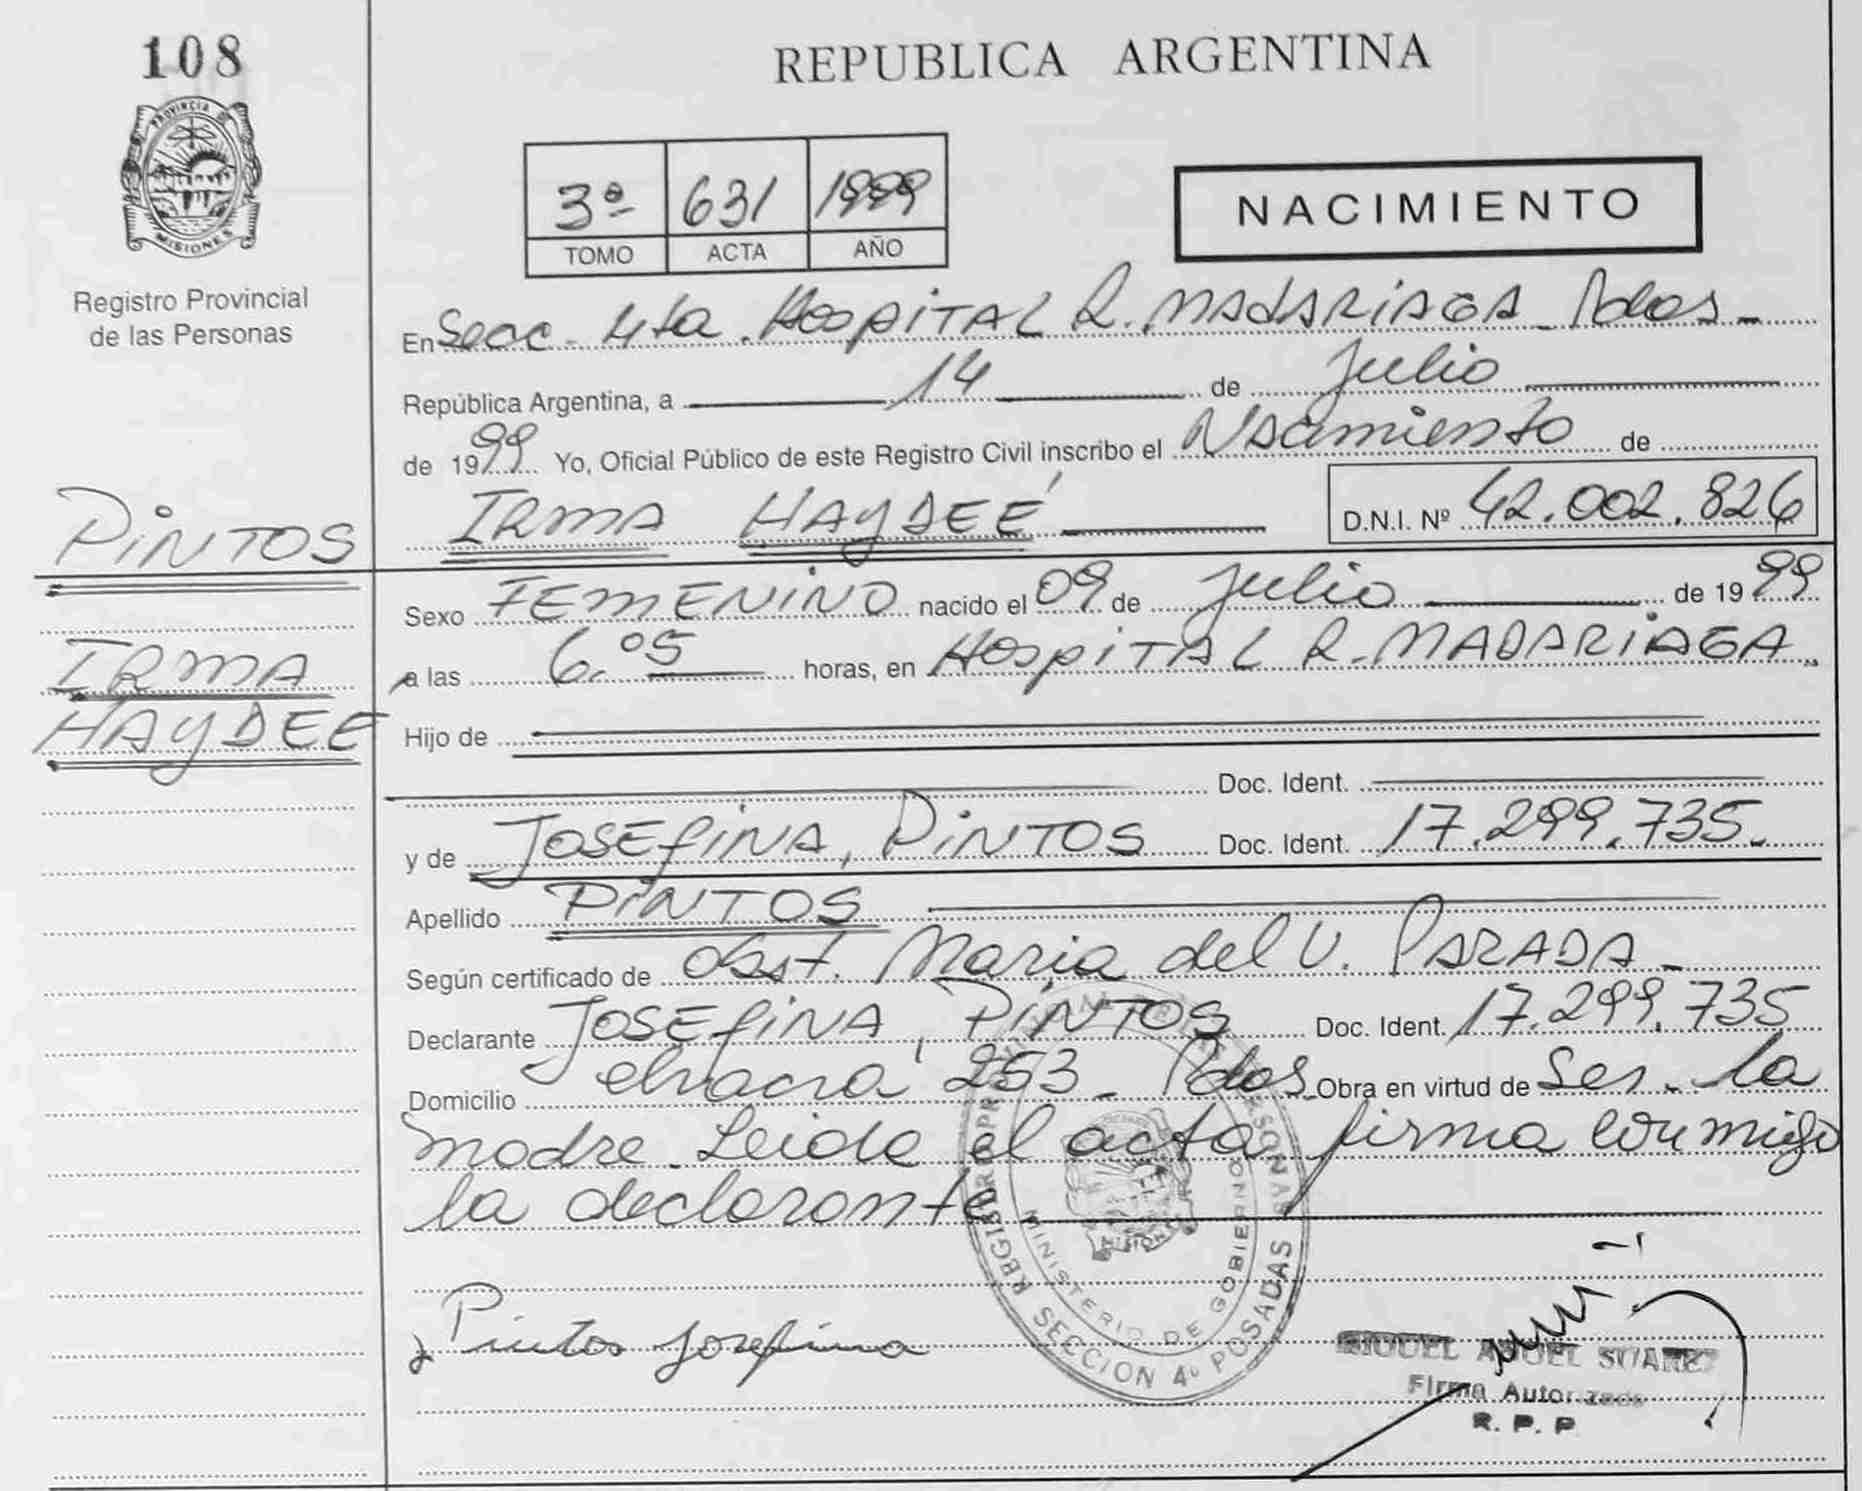 108
REPUBLICA ARGENTINA
PROVINCIA
MISIONES
Registro Provincial
de las Personas
3ª 631 1999
TOMO ACTA AÑO
NACIMIENTO
En Secc. 4ta. Hospital R. Madariaga - Pdas -
República Argentina, a 14 de Julio
de 1999 Yo, Oficial Público de este Registro Civil inscribo el Nacimiento de
IRMA HAYDEÉ D.N.I. Nº 42.002.826
PINTOS
Sexo FEMENINO nacido el 09 de Julio de 1999
IRMA
a las 6.05 horas, en Hospital R. MADARIAGA
HAYDEE
Hijo de
Doc. Ident.
y de JOSEFINA, PINTOS Doc. Ident. 17.299.735.
Apellido PINTOS
Según certificado de Obst. Maria del V. PARADA -
Declarante JOSEFINA, PINTOS Doc. Ident. 17.299.735
Domicilio chacra 253 - Pdas Obra en virtud de Ser - la
madre. Leida el acta firma conmigo
la declarante
Pintos Josefina
MINISTERIO DE GOBIERNO
SECCION 4º POSADAS
MIGUEL ANGEL SUAREZ
Firma Autorizada
R. P. P